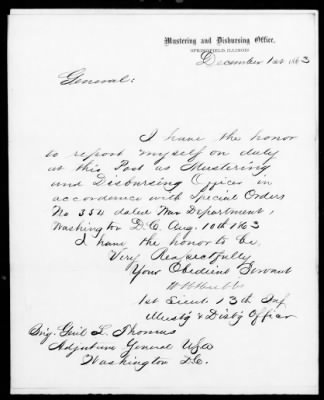 Mustering and Disbursing Office,
SPRINGFIELD, ILLINOIS
December 1st 1863
General:
I have the honor
to report myself on duty
at this Post as Mustering
and Disbursing Officer in
accordance with Special Orders
No 354 dated War Department,
Washington D.C. Aug. 10th 1863
I have the honor to be,
Very Respectfully
Your Obedient Servant
1st Lieut 13th Inf.
Must'g & Disb'g Officer
Brig. Gen'l L. Thomas
Adjutant General USA
Washington D.C.